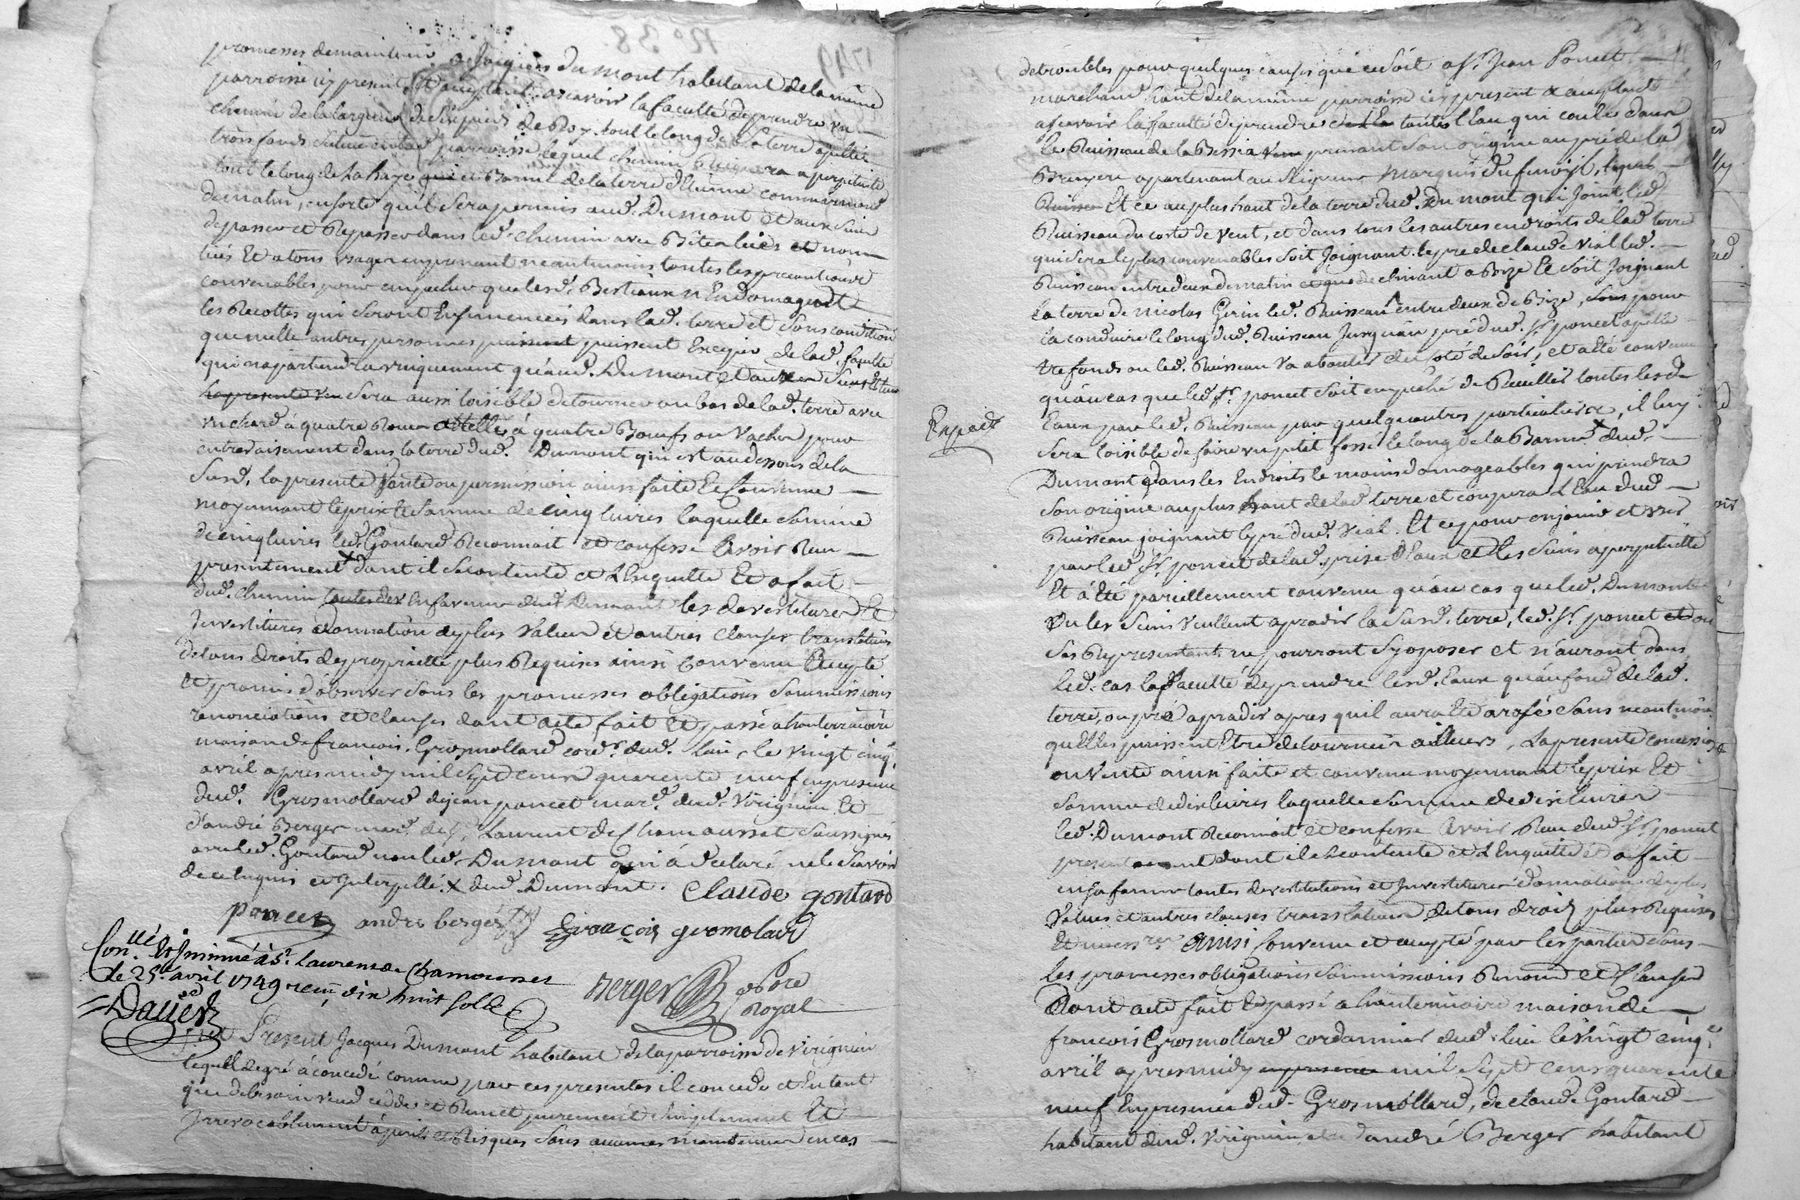 promesses de maintenir a Jacques Dumont habitant de la même
parroisse icy present et acceptant ascavoir la faculté de prendre un
chemin de la largeur de six pieds de Roy tout le long de la terre apellée
lequel chemin Reignera a perpetuité
tout le long de la haye et Barme de la terre
de matin, en sorte quil sera permis aud. Dumont et aux siens
de passer et Repasser dans led. chemin avec Bêtes liées et non
liées Et a tous usages en prenant neantmoins toutes les precautions
convenables pour empecher que lesd. Bestiaux n'Endomagent
les Recoltes qui seront Ensemencées dans lad. terre et sous condition
que nulle autres personnes puissent Exegier de lad. faculté
qui n'apartiendra uniquement quaud. Dumont et aux siens
sera aussi loisible de tourner au bas de lad. terre avec
un char à quatre Roues attellé à quatre Boeufs ou Vaches pour
entrer aisement dans la terre dud. Dumont qui est au dessous de la
susd. la presente Vante ou permission ainsi faite Et Convenue
moyennant le prix Et somme de cinq livres laquelle somme
de cinq livres led. Gontard Reconnoit et confesse avoir Reçu
presentement dont il se contente et L'Enquitte Et a fait
dud. chemin en faveur dud. Dumont les devestitures Et
Investitures donnation de plus Value et autres clauses translatives
de tous droits de proprietté plus Requises ainsi Convenu accepté
et promis d'observer sous les promesses obligations soummissions
renonciations et clauses dont acte fait Et passé a hauterivoire
maison de francois Grosmollard cord.r dud. lieu, le vingt cinq.e
avril apres midy mil sept cens quarente neuf en presence
dud. Grosmollard de jean poncet mar. dud. Virignieu Et
d'andré Berger mar. de S.t Laurent de Chamousset soussignés
avec led. Gontard non led. Dumont qui à declaré ne le sçavoir
de ce enquis et Interpellé. X dud. Dumont. Claude gontard
poncet andre berger françois gromolard
Con.llé et Insinué à S.t Laurens de Chamousset
le 25.e avril 1749 reçu dix huit sols
berger no.re Royal
Dauer
Fut Present Jacques Dumont habitant de la parroisse de Virignieu
lequel de gré à concedé comme par ces presentes il concede et En tant
que de besoin vend cedde et Remet purement simplement Et
Irrevocablement à perils et Risques sans aucunes maintenue en cas
de troubles pour quelques causes que ce soit a S.r Jean Poncet
marchand ha.nt de la même parroisse icy present et acceptant
ascavoir la faculté de prendre toutes l'Eau qui coule dans
le Ruisseau de la Bessia prenant son origine au pré de la
Bruyere apartenant au seigneur Marquis
Et ce au plus haut de la terre dud. Dumont qui Joint led.
Ruisseau du coste de vent, et dans tous les autres endroits de lad. terre
qui sera le plus convenables soit Joignant le pré de Claude Vial led.
Ruisseau entre deux de matin et Bize Et soit Joignant
la terre de nicolas Girin led. Ruisseau entre deux de Bize, sous pour
la conduire le long dud. Ruisseau Jusqu'au pré dud. S.r poncet apellé
tre fonds ou led. Ruisseau va aboutir du coté de soir, et a eté convenu
qu'au cas que led. S.r poncet soit empeché de Recueillir toutes lesd.
Expedié
Eaux par led. Ruisseau par quelquautres particuliers, il luy
sera loisible de faire un petit fossé le long de la Barme X dud.
Dumont dans les Endroits le moins domageables qui prendra
son origine au plus haut de lad. terre et coupera l'Eau dud.
Ruisseau joignant le pré dud. Vial. Et ce pour en jouir et user
par led. S.r poncet de lad. prise d'Eaux et les siens a perpetuitté
Et à Eté pareillement convenu qu'au cas que led. Dumont
ou les siens veullent apradir la susd. terre, led. S.r poncet ou
ses Representants ne pourront s'y oposer et n'auront dans
led. cas la faculté de prendre lesd. Eaux qu'au fond de lad.
terre, ou pré apradir apres quil aura Eté arosé sans neantmoin
quelles puissent Etre detournées ailleurs, la presente concession
ou vente ainsi faite et convenue moyennant le prix Et
somme de dix livres laquelle somme de dix livres
led. Dumont Reconnoit et confesse avoir Reçu dud. S.r poncet
presentement dont il se contente et L'Enquitte et a fait
en sa faveur toutes devestitutions et Investitures donnation de plus
Values et autres clauses translatives de tous droits plus Requises
Et necess.res ainsi convenu et accepté par les parties sous
les promesses obligations soummissions Renond et Clauses
Dont acte fait Et passé a hauterivoire maison de
francois Grosmollard cordonnier dud. lieu le vingt cinq.e
avril apres midy mil sept cens quarente
neuf En presence dud. Grosmollard, de claude Gontard
habitant dud. Virignieu et d'andré Berger habitant